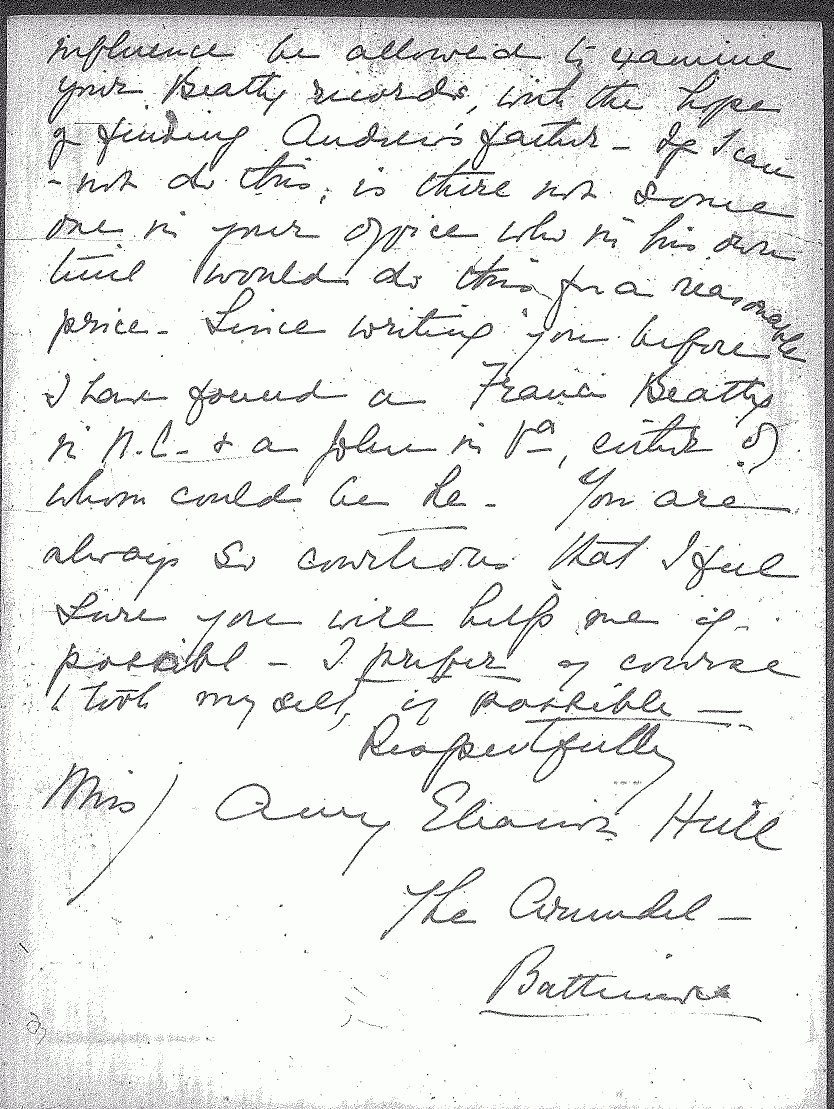 influence be allowed to examine
your Beatty records, with the hope
of finding Andrew's father - If I can
- not do this, is there not some
one in your office who in his own
time would do this for a reasonable
price - Since writing you before
I have found a Francis Beatty
in N.C. & a John in Va, either of
whom could be he - You are
always so courteous that I feel
sure you will help me if
possible - I prefer of course
to look myself, if possible -
Respectfully
Miss) Amy Eleanor Hull
The Arundel -
Baltimore